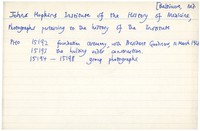 [Baltimore, Md.]
Johns Hopkins Institute of the History of Medicine
Photographs pertaining to the history of the Institute
15192 foundation ceremony, with
15193 the building under construction
15194 - 15198 group photographs